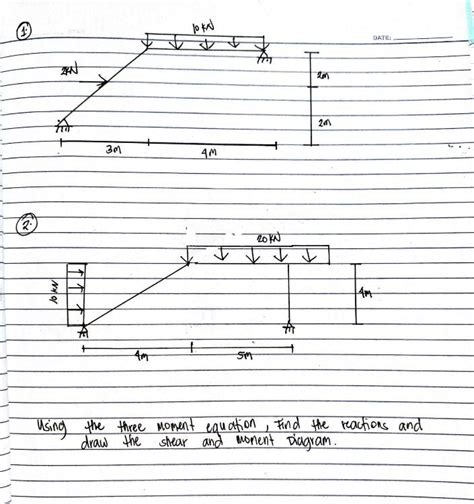 1.
10 kN
DATE:
2kN
2m
2m
3m
4m
2.
20 kN
10 kN
4m
4m
5m
Using the three moment equation, Find the reactions and
draw the shear and moment Diagram.